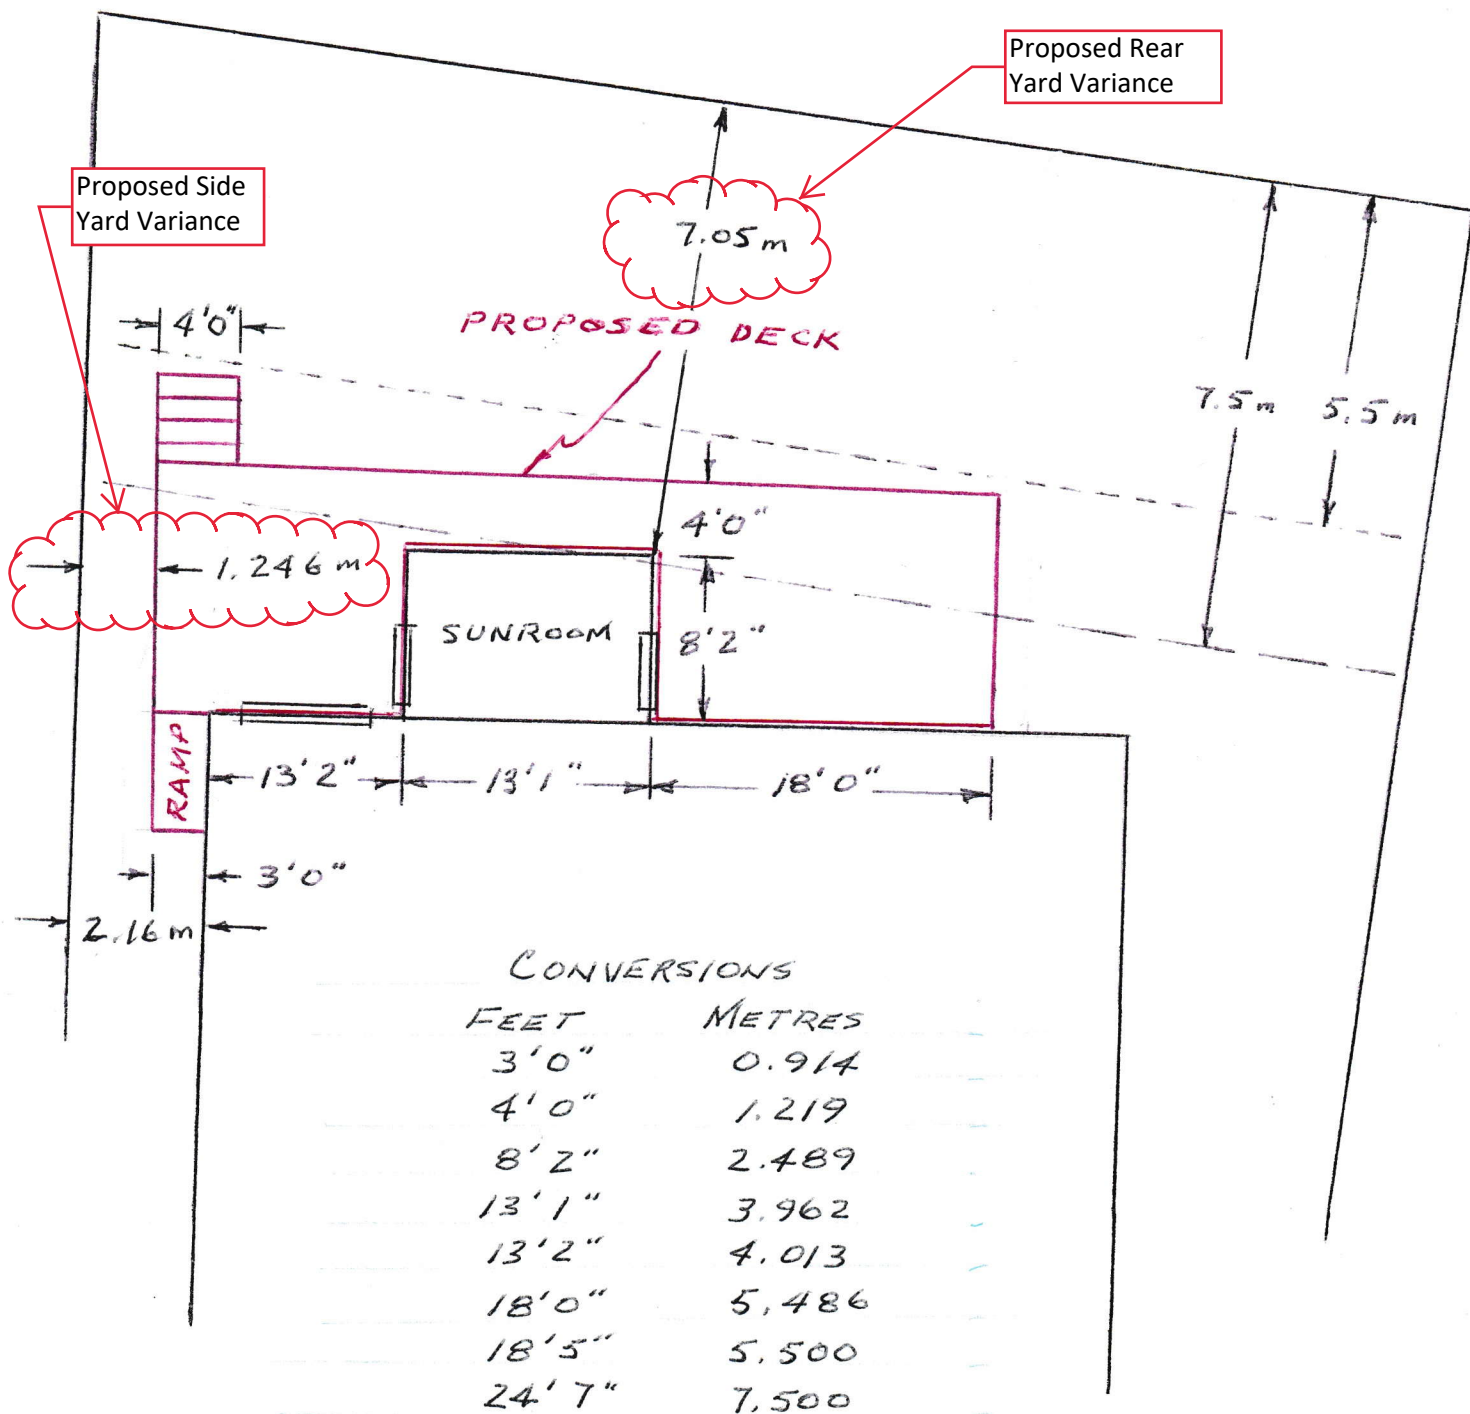 Proposed Rear
Yard Variance
Proposed Side
Yard Variance
7.05 m
4'0"
PROPOSED DECK
7.5 m
5.5 m
4'0"
1.246 m
SUNROOM
8'2"
RAMP
13'2"
13'1"
18'0"
3'0"
2.16 m
CONVERSIONS
FEET METRES
3'0" 0.914
4'0" 1.219
8'2" 2.489
13'1" 3.962
13'2" 4.013
18'0" 5.486
18'5" 5.500
24'7" 7.500